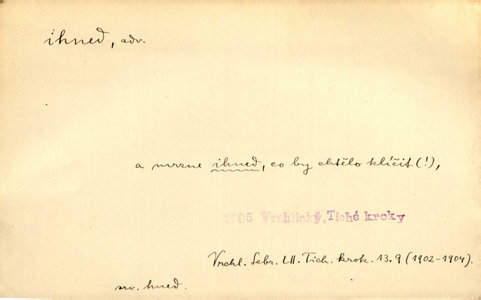 ihned, adv.
a mrzne ihned, co by chtělo klíčit (!),
1905 Vrchlický, Tiché kroky
Vrchl. Sebr. LII. Tich. krok. 13.9 (1902-1904).
srv. hned.